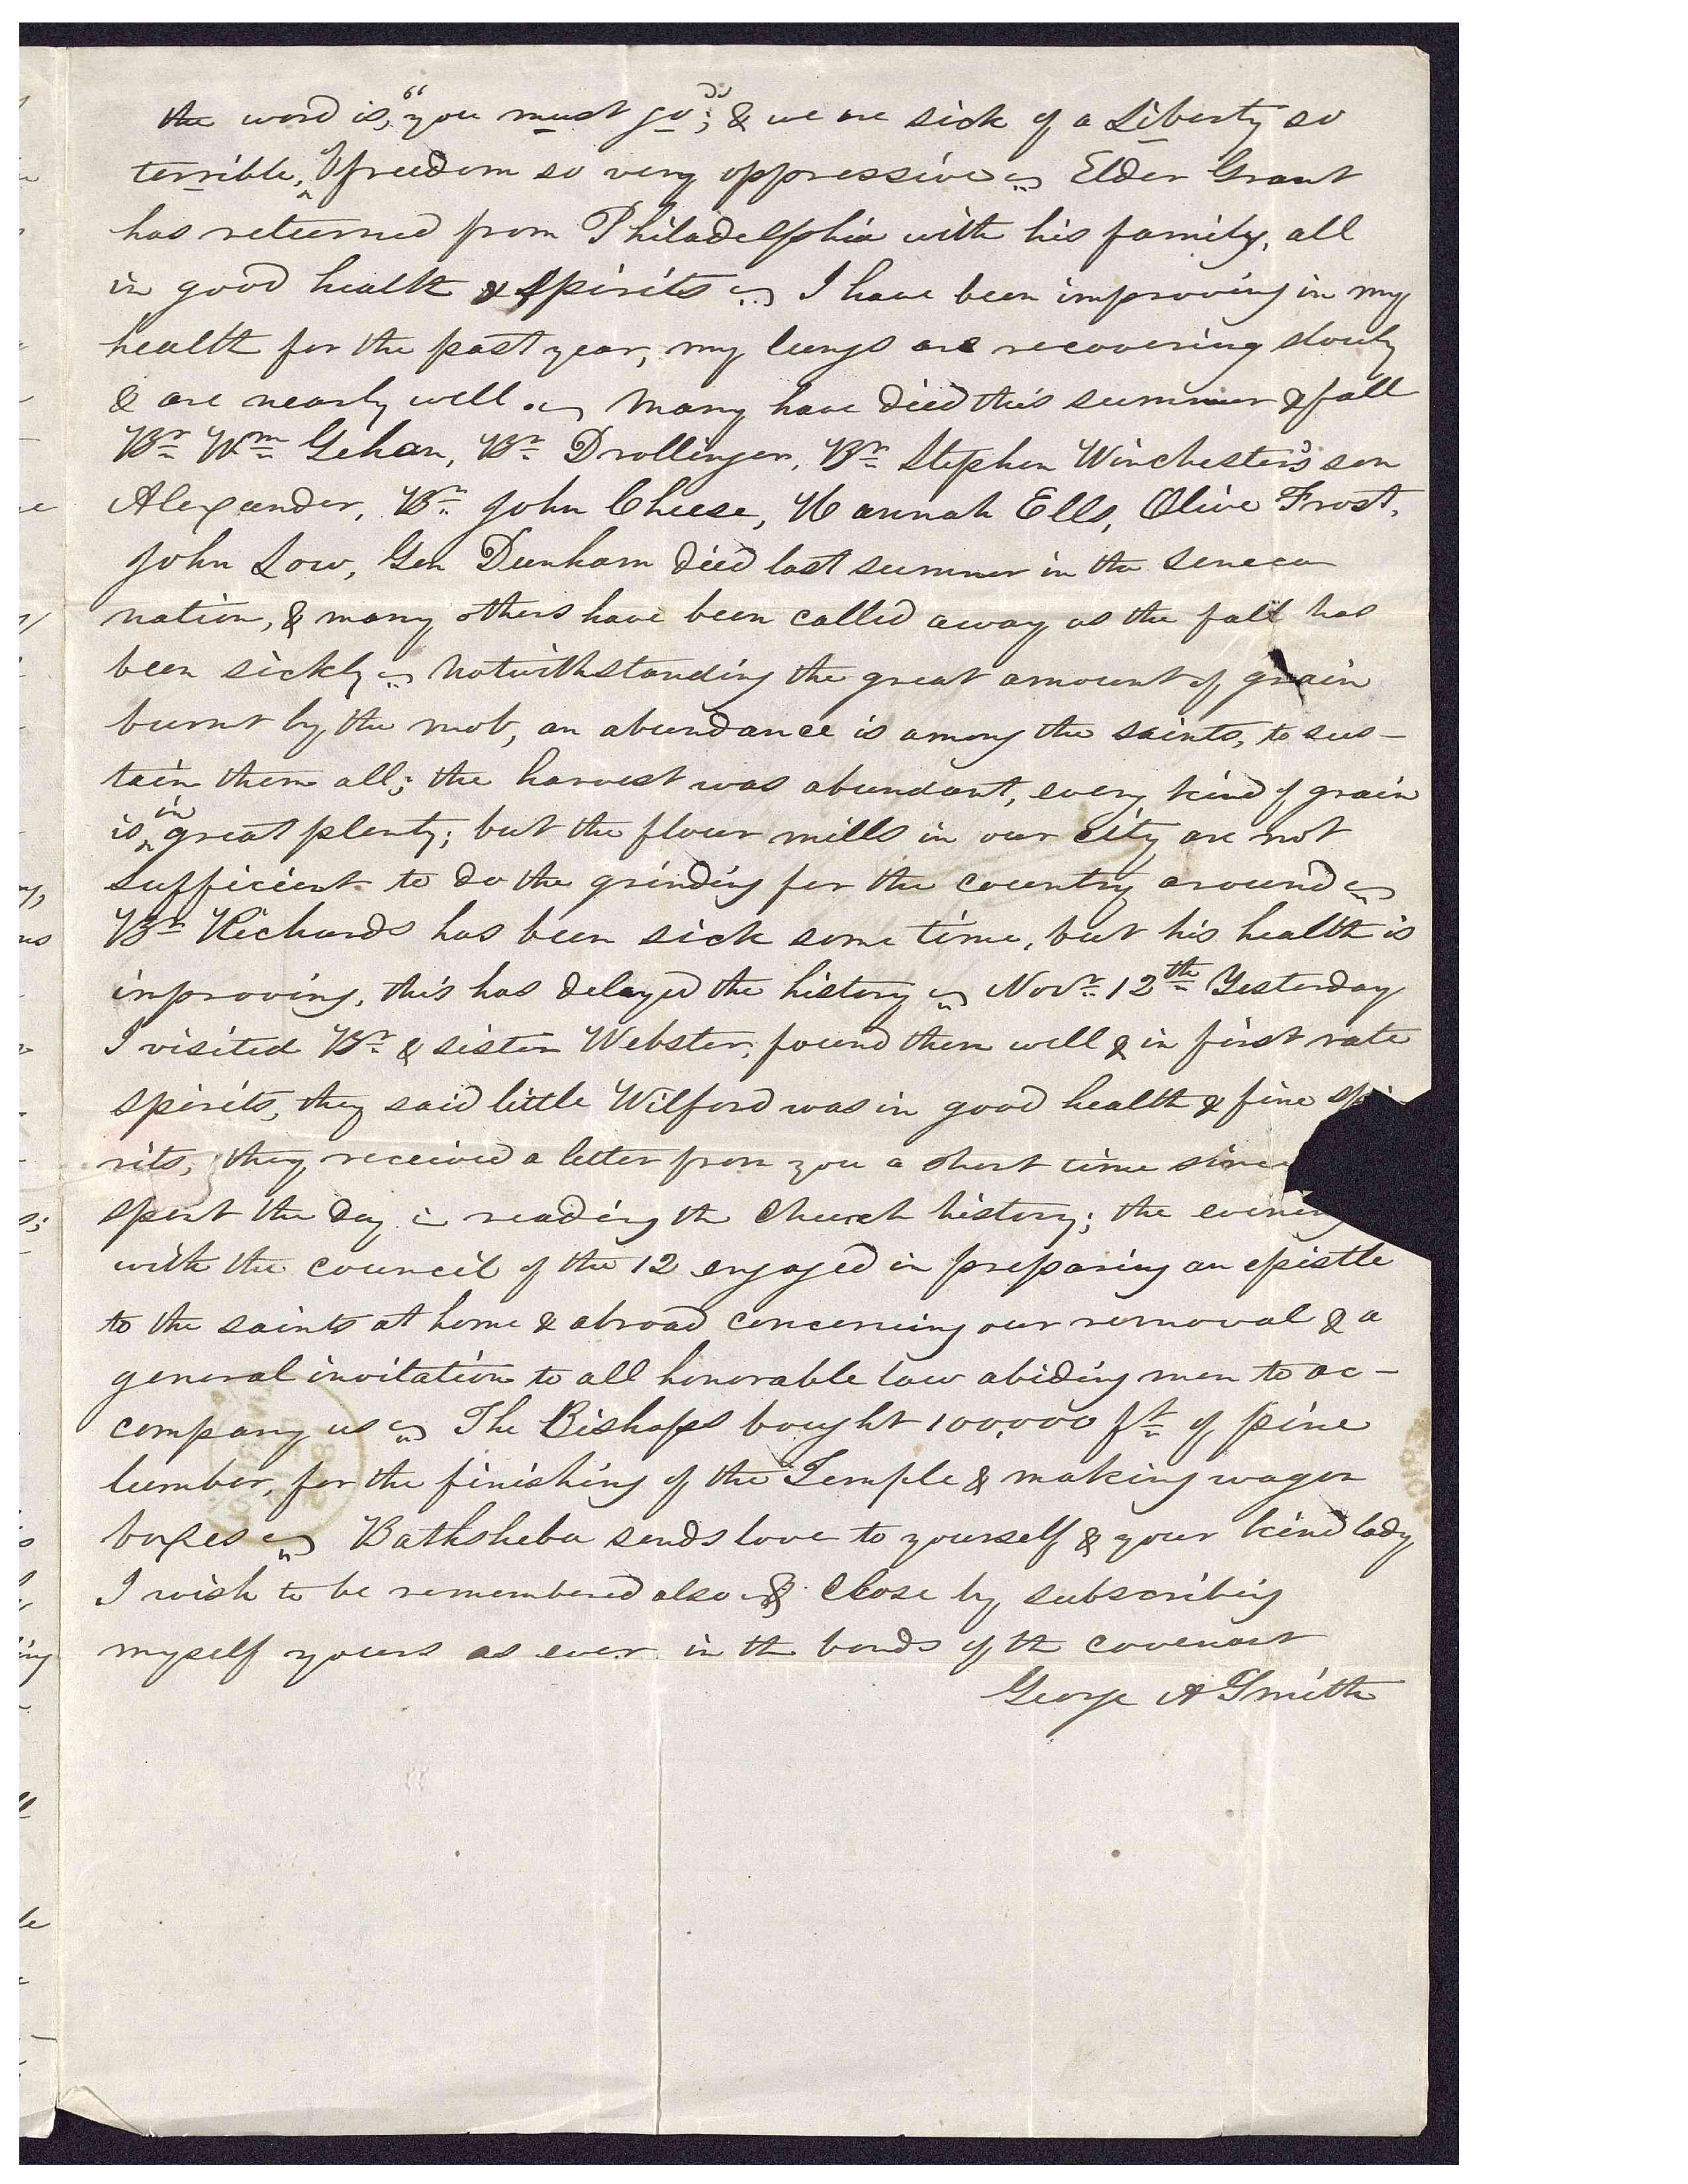 the word is, "you must go"; & we are sick of a Liberty so
terrible, of freedom so very oppressive Elder Grant
has returned from Philadelphia with his family, all
in good health & spirits I have been improving in my
health for the past year, my lungs are recovering slowly
& are nearly well. Many have died this summer & fall
Br Wm Gehan, Br Drollinger, Br Stephen Winchester's son
Alexander, Br John Cheese, Hannah Ells, Olive Frost,
John Low, Gen Dunham died last summer in the Seneca
nation, & many others have been called away as the fall has
been sickly Notwithstanding the great amount of grain
burnt by the mob, an abundance is among the saints, to sus-
tain them all; the harvest was abundant, every kind of grain
is in great plenty; but the flour mills in our city are not
sufficient to do the grinding for the country around
Br Richards has been sick some time, but his health is
improving, this has delayed the history Novr 12th Yesterday
I visited Br & sister Webster, found them well & in first rate
spirits, they said little Wilford was in good health & fine spi
rits, they received a letter from you a short time since
spent the day in reading the Church history; the evening
with the council of the 12 engaged in preparing an epistle
to the saints at home & abroad concerning our removal & a
general invitation to all honorable law abiding men to ac-
company us The Bishops bought 100,000 ft of pine
lumber, for the finishing of the Temple & making wagon
boxes Bathsheba sends love to yourself & your kind lady
I wish to be remembered also & close by subscribing
myself yours as ever in the bonds of the covenant
George A Smith